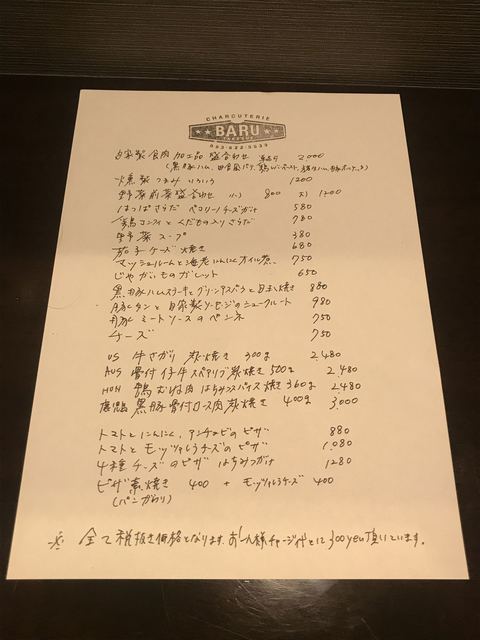 CHARCUTERIE
BARU
自家製食肉加工品盛合わせ 2,000
燻製つまみいろいろ 1200
野菜前菜盛合わせ 小) 800 大) 1200
はっぱさらだ ペコリーノチーズがけ 580
鴨コンフィとくだもの入りさらだ 780
野菜スープ 380
茄子チーズ焼き 680
マッシュルームと海老にんにくオイル煮 750
じゃがいものガレット 650
黒豚ハムステーキとグリンアスパラと目玉焼き 880
豚タンと自家製ソーセージのシュークルート 980
豚ミートソースのペンネ 750
チーズ 750
US 牛さがり 炭焼き 300g 2,480
AUS 骨付仔牛スペアリブ炭焼き 500g 2,480
HUN 鴨むね肉はちみつスパイス焼き 360g 2480
鹿児島 黒豚骨付ロース肉炭焼き 400g 3,000
トマトとにんにく、アンチョビのピザ 880
トマトとモッツァレラチーズのピザ 1,080
4種チーズのピザ はちみつがけ 1280
ピザ素焼き 400 + モッツァレラチーズ 400
(パンがわり)
※ 全て税抜き価格となります。お一人様チャージ代として300yen頂いています。